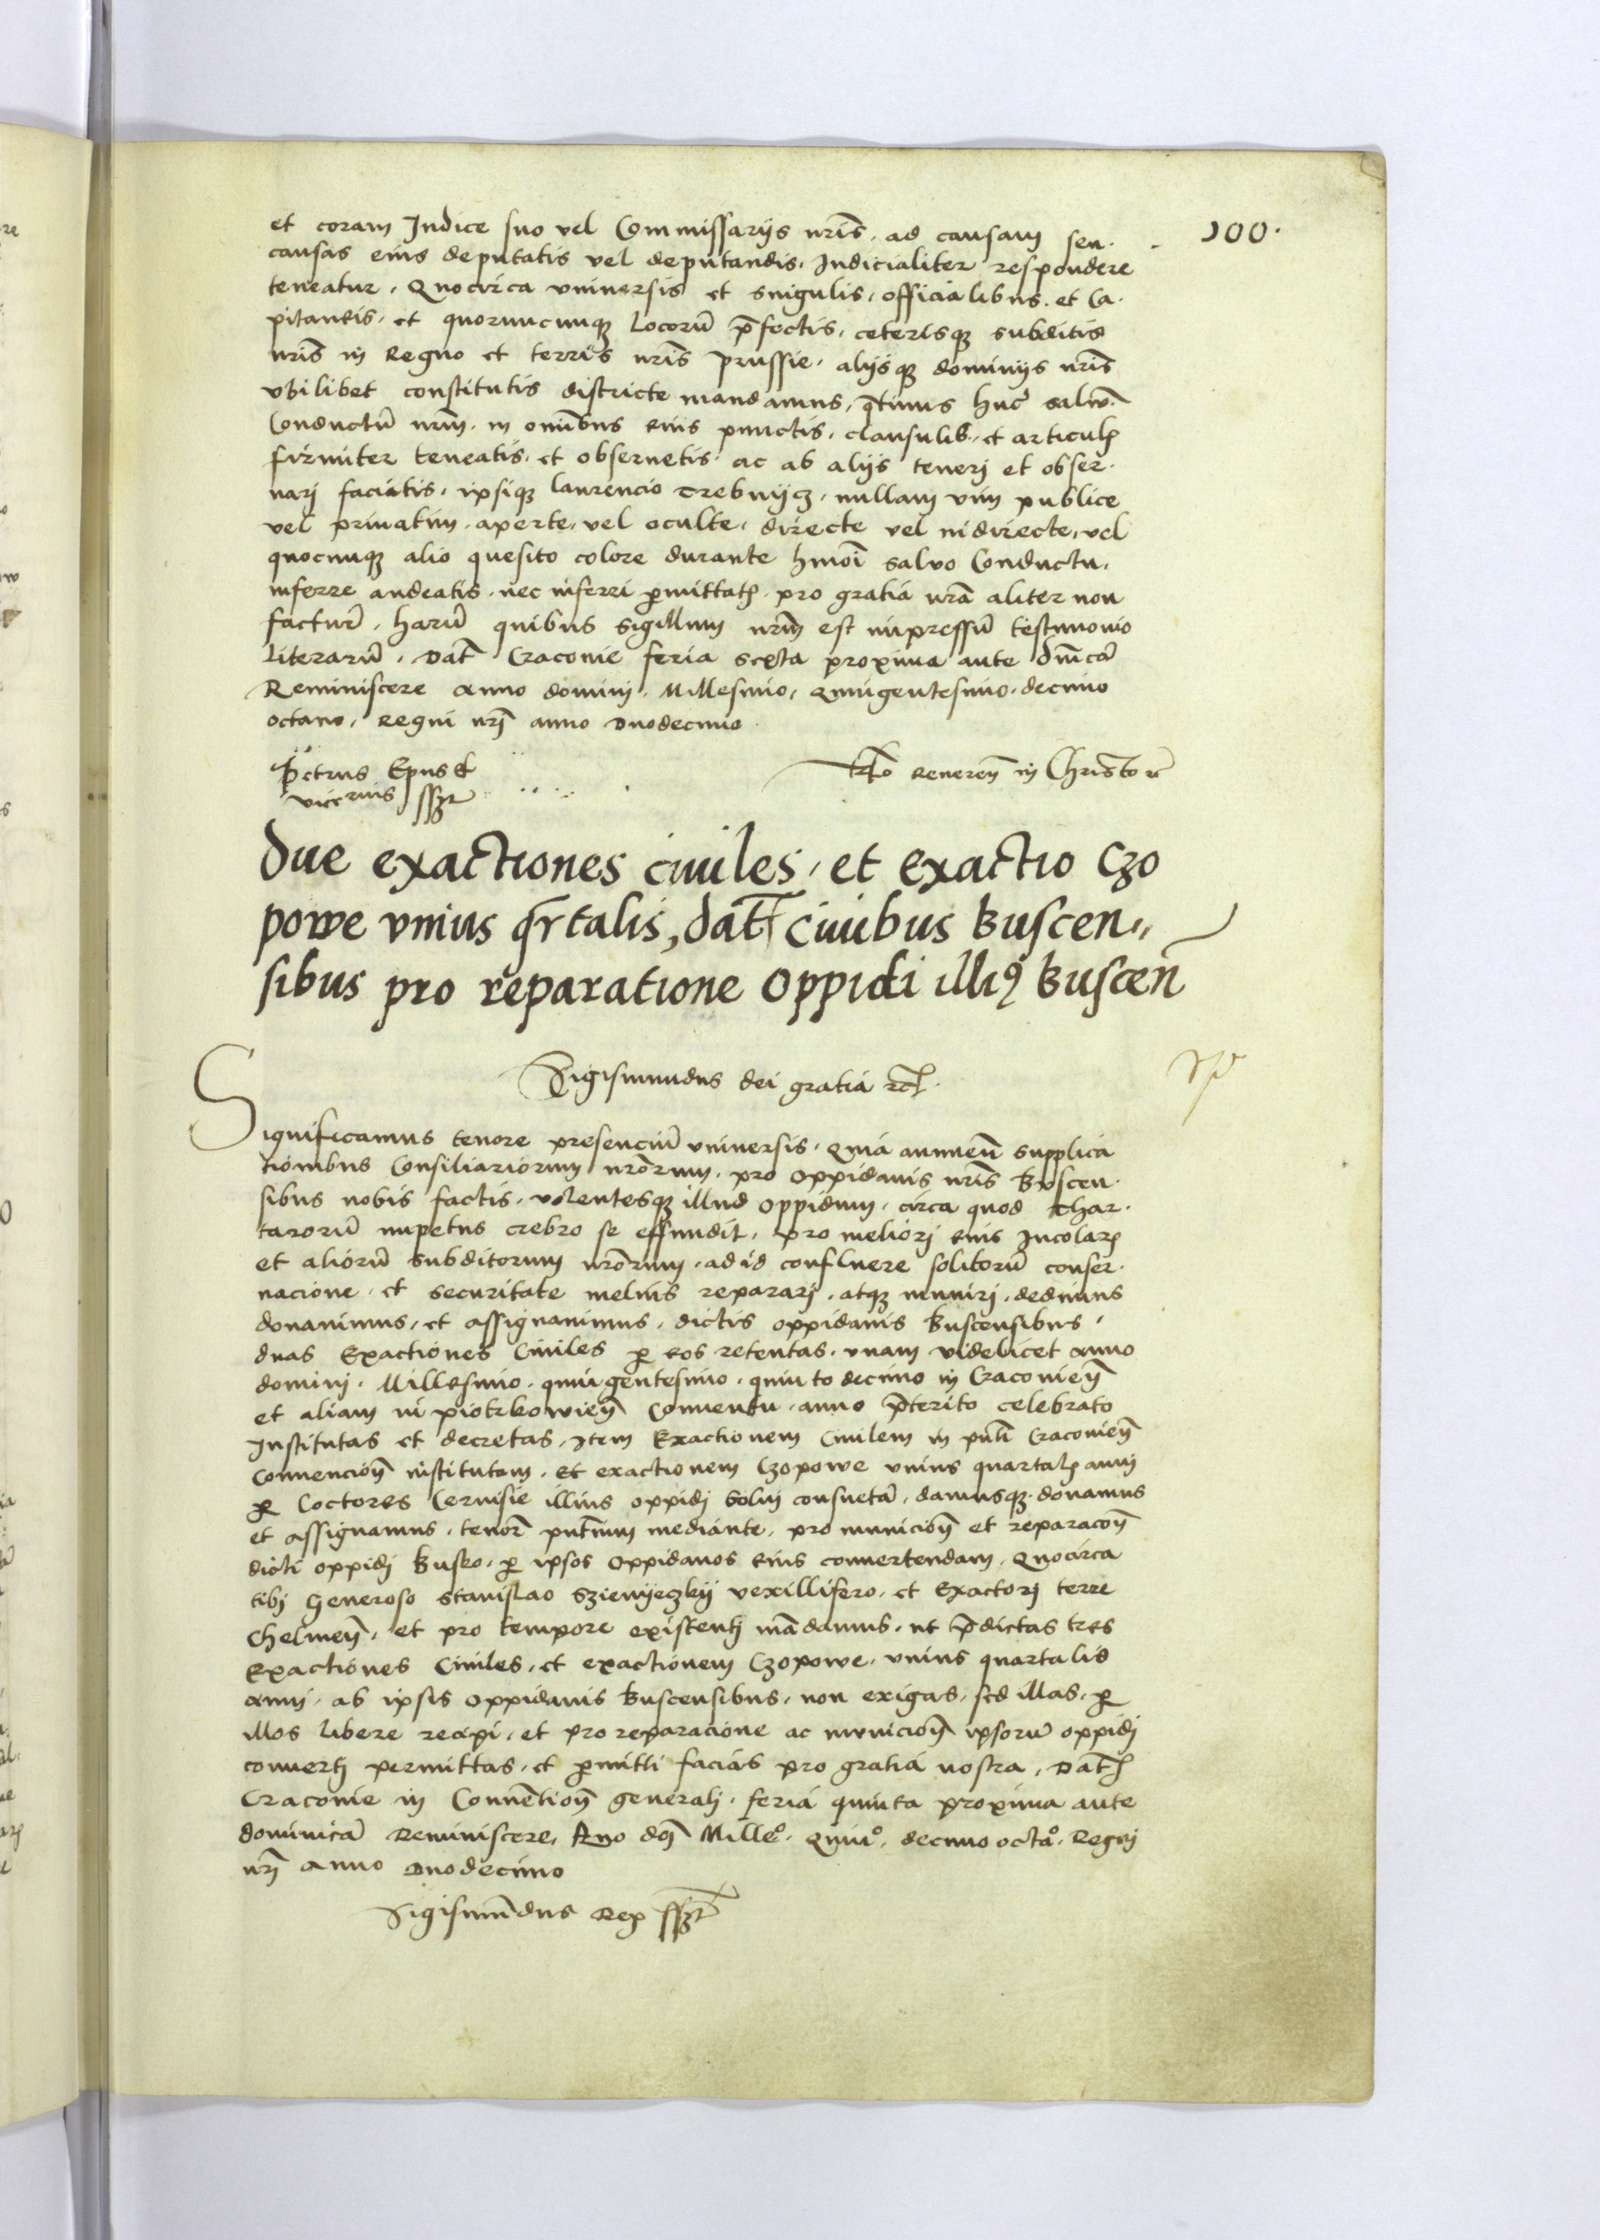 100.
et coram Judice suo vel Commissarijs nrīs. ad causam seu.
causas eius deputatis vel deputandis. Judicialiter respondere
teneatur. Quocirca vniuersis et singulis. officialibus. et Ca.
pitaneis. et quorumcunqꝫ locorū p̄fectis. ceterisqꝫ subditis
nrīs in Regno et terris nrīs Prussie. alijsqꝫ dominijs nrīs
vbilibet constitutis districte mandamus, q̄tinus hūc saluū
Conductū nrm̄. in omībus eius punctis, clausulis. et articulꝭ
firmiter teneatis. et obseruetis. ac ab alijs tenerj et obser.
uarj faciatis. ipsiqꝫ laurencio Trebnijcz. nullam vim publice
vel priuatim. aperte, vel oculte, directe vel indirecte, vel
quocunqꝫ alio quesito colore durante hmōi saluo Conductu.
inferre audeatis. nec inferri ꝑmittatꝭ. pro gratia nrā aliter non
facturī. harū quibus sigillum nrm̄ est impressū testimonio
literarū. Datˉ Cracouie feria sexta proxima ante dn̄icā
Reminiscere anno dominj. Millesimo, Quingentesimo. decimo
octauo, Regni nrī anno Duodecimo.
Petrus Ep̄us et
vicecrius sszt
Rēlo Reuereñ in Christo rc̄
Due exactiones ciuiles, et exactio Czo
powe vnius qr̄talis, dat̄ Ciuibus Buscen„
sibus pro reparatione Oppidi illiꝯ Buscen̄
Sigismundus dei gratia rcꝭ.
Significamus tenore presenciū vniuersis. Quia annueñ supplica
tionibus Consiliariorum nrōrum. pro Oppidanis nrīs Buscen.
sibus nobis factis. volentesqꝫ illud Oppidum, circa quod Thar.
tarorū impetus crebro se effundit. pro meliorj eius Incolarꝭ
et aliorū subditorum nrōrum. ad id confluere solitorū conser.
uacione. et securitate melius repararj. atqꝫ munirj. dedimus
donauimus, et assignauimus, dictis oppidanis Buscensibus,
duas Exactiones Ciuiles ꝑ eos retentas. vnam videlicet anno
dominj. Millesimo. quingentesimo. quinto decimo in Cracouieñ
et aliam in piotrkowieñ Conuentu. anno p̄terito celebrato
Institutas et decretas. Item Exactionem Ciuilem in pn̄ti Cracouieñ
Conuencioñ institutam. et exactionem Czopowe vnius quartalꝭ annj
ꝑ Coctores Ceruisie illius oppidj solui consuetā, damusqꝫ. donamus
et assignamus. tenorē pn̄tium mediante, pro municioñ et reparacoñ
dicti oppidj Busko. ꝑ ipsos Oppidanos eius conuertendam. Quocirca
tibj Generoso Stanislao Szienijeczkij vexillifero. et Exactorj terre
Chelmeñ. et pro tempore existentj mādamus. ut p̄dictas tres
Exactiones Ciuiles, et exactionem Czopowe. vnius quartalis
annj. ab ipsis oppidanis Buscensibus, non exigas, sed illas. ꝑ
illos libere recipi. et pro reparacione ac municioñ ipsorū oppidj
conuertj permittas. et ꝑmitti facias pro gratia nostra. Datꝭ
Cracouie in Conuētioñ generalj. feria quinta proxima ante
dominicā Reminiscere, Ano dnj̄ Milleº. Quinº. decimo octāº. Regnj
nrj̄ anno Duodecimo
Sigismūdus Rex sszt